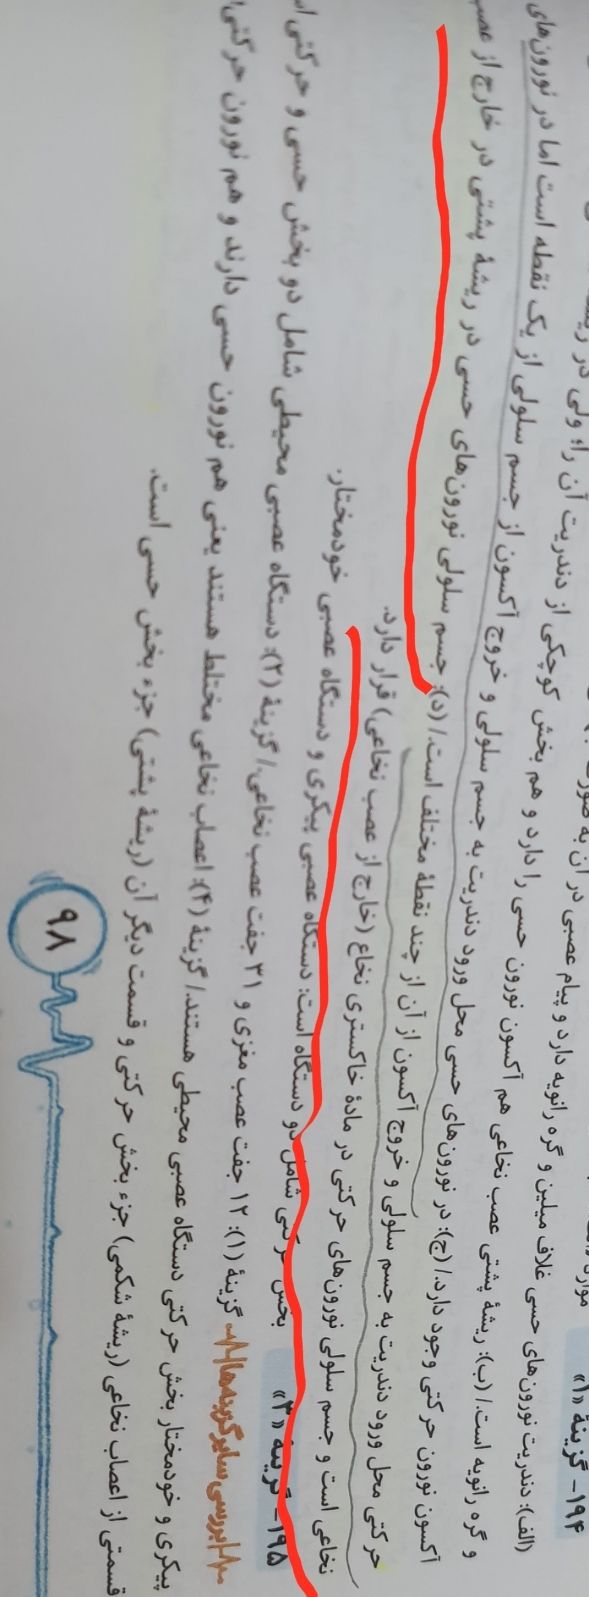 ۱۹۴- گزینۀ «۱»
(الف): دندریت نورون‌های حسی غلاف میلین و گره رانویه دارد و پیام عصبی در آن به صورت
و گره رانویه است./ (ب): ریشۀ پشتی عصب نخاعی هم آکسون نورون حسی را دارد و هم بخش کوچکی از دندریت آن را؛ ولی در
آکسون نورون حرکتی وجود دارد./ (ج): در نورون‌های حسی محل ورود دندریت به جسم سلولی و خروج آکسون از جسم سلولی از یک نقطه است اما در نورون‌های
حرکتی محل ورود دندریت به جسم سلولی و خروج آکسون از آن از چند نقطۀ مختلف است./ (د): جسم سلولی نورون‌های حسی در ریشۀ پشتی در خارج از
نخاعی است و جسم سلولی نورون‌های حرکتی در مادۀ خاکستری نخاع (خارج از عصب نخاعی) قرار دارد.
۱۹۵- گزینۀ «۳»
بخش حرکتی شامل دو دستگاه است: دستگاه عصبی پیکری و دستگاه عصبی خودمختار.
بررسی سایر گزینه‌ها: گزینۀ (۱): ۱۲ جفت عصب مغزی و ۳۱ جفت عصب نخاعی./ گزینۀ (۲): دستگاه عصبی محیطی شامل دو بخش حسی و حرکتی
پیکری و خودمختار بخش حرکتی دستگاه عصبی محیطی هستند./ گزینۀ (۴): اعصاب نخاعی مختلط هستند یعنی هم نورون حسی دارند و هم نورون حرکتی
قسمتی از اعصاب نخاعی (ریشۀ شکمی) جزء بخش حرکتی و قسمت دیگر آن (ریشۀ پشتی) جزء بخش حسی است.
۹۸